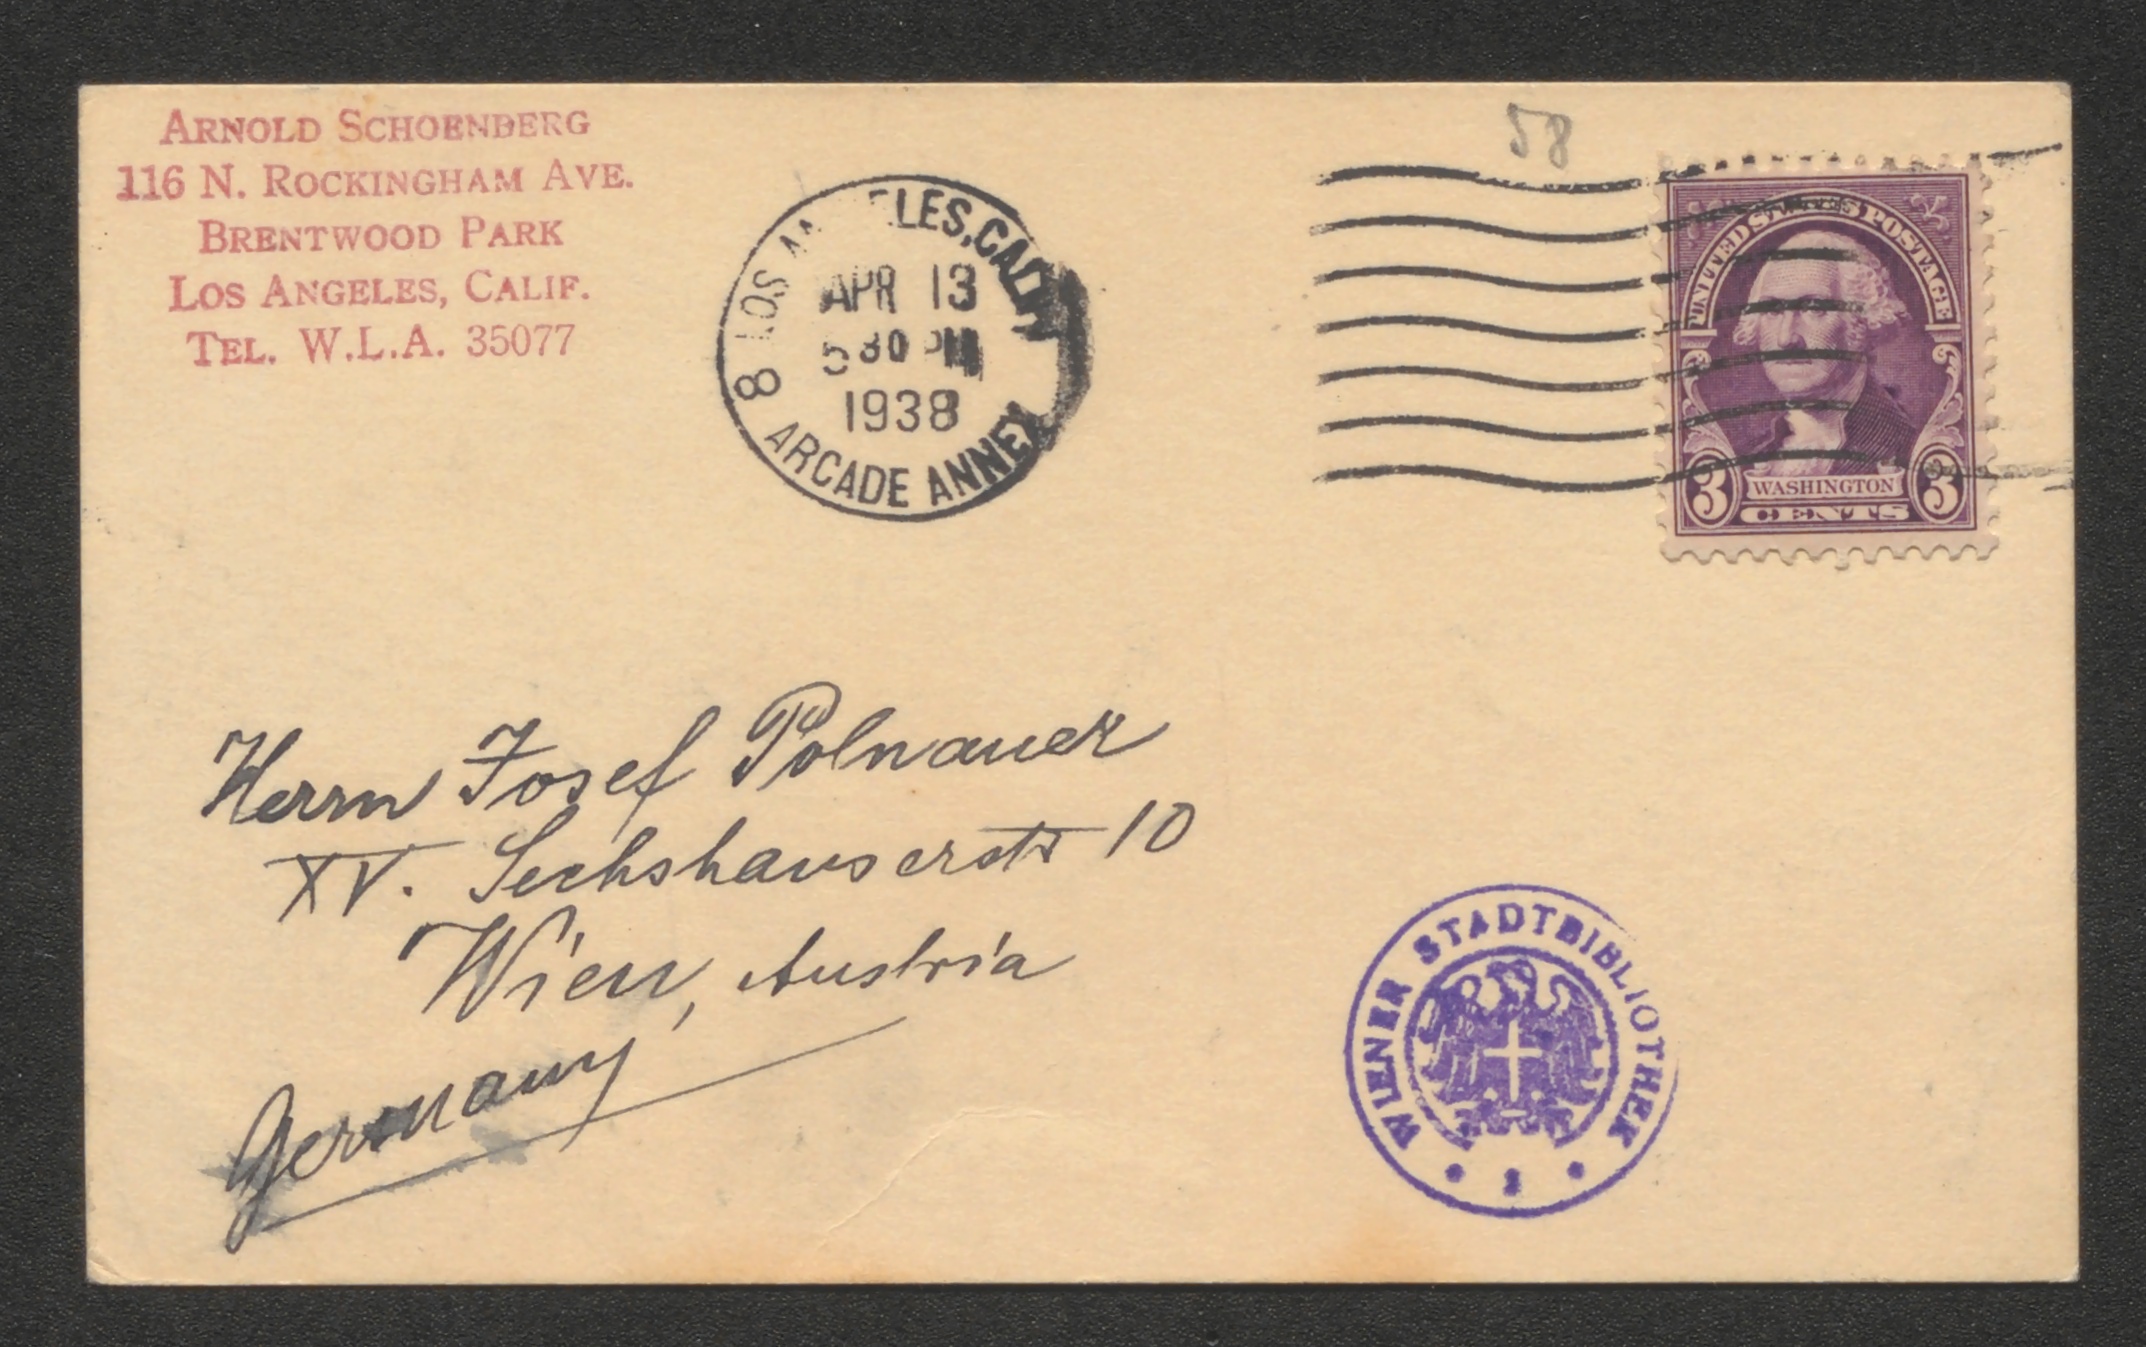 ARNOLD SCHOENBERG
116 N. ROCKINGHAM AVE.
BRENTWOOD PARK
LOS ANGELES, CALIF.
TEL. W.L.A. 35077
LOS ANGELES, CALIF.
8
APR 13
5 30 PM
1938
ARCADE ANNEX
58
UNITED STATES POSTAGE
3 WASHINGTON 3
CENTS
Herrn Josef Polnauer
XV. Sechshauserstr 10
Wien, Austria
Germany
WIENER STADTBIBLIOTHEK